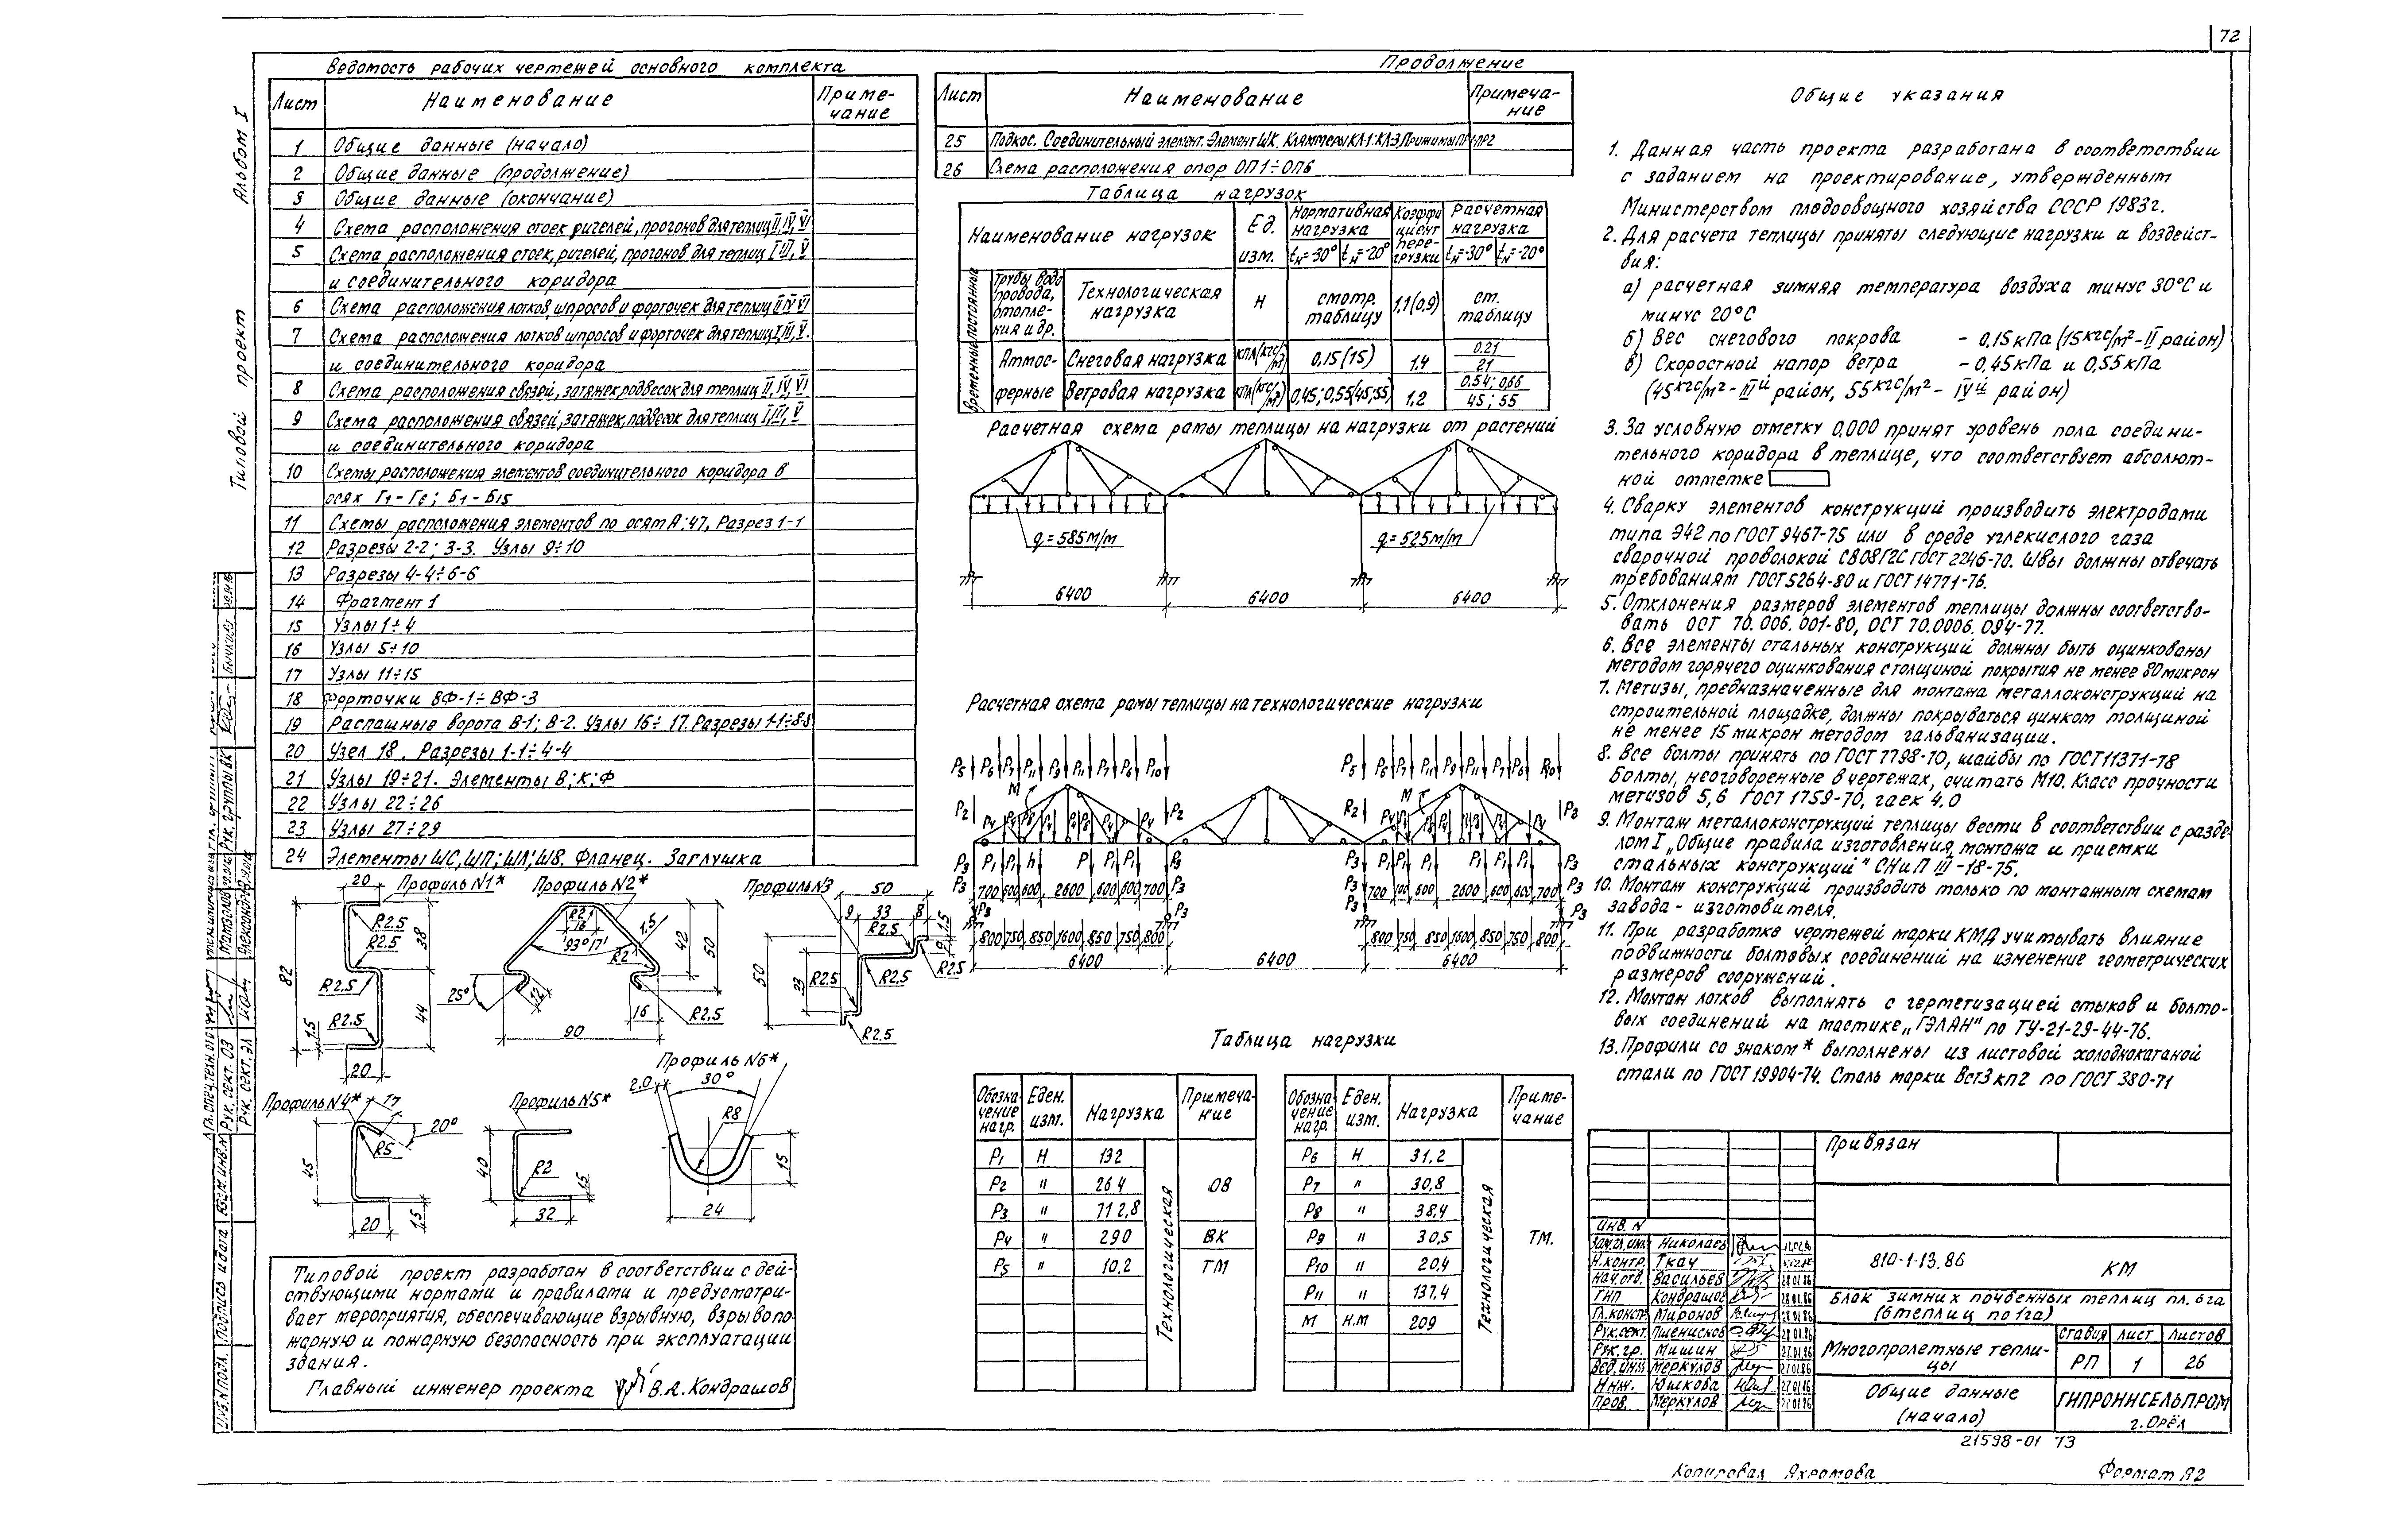 72
Альбом I
Типовой проект
Ведомость рабочих чертежей основного комплекта
Лист Наименование Приме-
чание
1 Общие данные (начало)
2 Общие данные (продолжение)
3 Общие данные (окончание)
4 Схема расположения стоек ригелей, прогонов для теплиц II, IV, VI
5 Схема расположения стоек, ригелей, прогонов для теплиц I, III, V
и соединительного коридора
6 Схема расположения лотков, шпросов и форточек для теплиц II IV VI
7 Схема расположения лотков шпросов и форточек для теплиц I, III, V.
и соединительного коридора
8 Схема расположения связей, затяжек, подвесок для теплиц II, IV, VI
9 Схема расположения связей, затяжек, подвесок для теплиц I, III, V
и соединительного коридора
10 Схемы расположения элементов соединительного коридора в
осях Г1-Г6; Б1-Б15
11 Схемы расположения элементов по осям А; 47, Разрез 1-1
12 Разрезы 2-2; 3-3. Узлы 9÷10
13 Разрезы 4-4÷6-6
14 Фрагмент 1
15 Узлы 1÷4
16 Узлы 5÷10
17 Узлы 11÷15
18 Форточки ВФ-1÷ВФ-3
19 Распашные ворота В-1; В-2. Узлы 16÷17. Разрезы 1-1÷8-8
20 Узел 18. Разрезы 1-1÷4-4
21 Узлы 19÷21. Элементы В; К; Ф
22 Узлы 22÷26
23 Узлы 27÷29
24 Элементы ШС, ШП; ШЛ; Ш8. Фланец. Заглушка
Продолжение
Лист Наименование Примеча-
ние
25 Подкос. Соединительный элемент. Элемент ЩК. Кляммеры КЛ-1÷КЛ-3, Прижимы ПР1, ПР2
26 Схема расположения опор ОП1÷ОП6
Таблица нагрузок
Наименование нагрузок Ед. изм. Нормативная нагрузка Коэффициент перегрузки Расчетная нагрузка
tн=-30° tн=-20° tн=-30° tн=-20°
постоянные Трубы водопровода, отопления и др. Технологическая нагрузка Н смотр. таблицу 1,1(0,9) см. таблицу
временные Атмос- Снеговая нагрузка кПа(кгс/м²) 0,15(15) 1,4 0.21 21
ферные Ветровая нагрузка кПа(кгс/м²) 0,45; 0,55(45; 55) 1,2 0.54; 0,66 45; 55
Расчетная схема рамы теплицы на нагрузки от растений
q=585м/м q=525м/м
6400 6400 6400
Расчетная схема рамы теплицы на технологические нагрузки
P5 P6 P7 P11 P9 P11 P7 P8 P10
P5 P6 P7 P11 P9 P11 P7 P8
P2 M P2 M P2
P3 P1 P1 P P1 P1
P3 P1 P1 P1 P1 P1 P3
700 600 600 2600 600 600 700
700 600 2600 600 600 700
800 750 850 1600 850 750 800
800 750 850 1600 850 750 800
6400 6400 6400
Профиль N1*
20 R2.5 R2.5 38 82 R2.5 R2.5 44 1.5 20
Профиль N2*
R2 16 93°17' 1,5 R2 42 50 25° 12 16 R2.5 90
Профиль N3
50 9 33 8 1.5 R2.5 9 R2.5 50 33 R2.5 R2.5 R2.5
Профиль N4*
17 20° R5 45 20 1.5
Профиль N5*
40 R2 15 32
Профиль N6*
2.0 30° R8 15 24
Типовой проект разработан в соответствии с дей-
ствующими нормами и правилами и предусматри-
вает мероприятия, обеспечивающие взрывную, взрывопо-
жарную и пожарную безопасность при эксплуатации
здания.
Главный инженер проекта В.А. Кондрашов
Таблица нагрузки
Обозначение нагр. Еден. изм. Нагрузка Примеча-
ние
P1 Н 132
P2 " 264 ОВ
P3 " 712,8
P4 " 290 ВК
P5 " 10.2 ТМ
Технологическая
Обозначение нагр. Еден. изм. Нагрузка Приме-
чание
P6 Н 31.2
P7 " 30,8
P8 " 38,4
P9 " 30,5 ТМ.
P10 " 20,4
P11 " 137.4
М Н.М 209
Технологическая
Общие указания
1. Данная часть проекта разработана в соответствии
с заданием на проектирование, утвержденным
Министерством плодоовощного хозяйства СССР 1983г.
2. Для расчета теплицы приняты следующие нагрузки и воздейст-
вия:
а) расчетная зимняя температура воздуха минус 30°С и
минус 20°С
б) Вес снегового покрова - 0,15 кПа (15кгс/м²-II район)
в) Скоростной напор ветра - 0,45кПа и 0,55кПа
(45кгс/м²-IIIй район, 55кгс/м²- IVй район)
3. За условную отметку 0,000 принят уровень пола соедини-
тельного коридора в теплице, что соответствует абсолют-
ной отметке
4. Сварку элементов конструкций производить электродами
типа Э42 по ГОСТ 9467-75 или в среде углекислого газа
сварочной проволокой СВ08Г2С ГОСТ 2246-70. Швы должны отвечать
требованиям ГОСТ 5264-80 и ГОСТ 14771-76.
5. Отклонения размеров элементов теплицы должны соответство-
вать ОСТ 70.006.001-80, ОСТ 70.0006.094-77.
6. Все элементы стальных конструкций должны быть оцинкованы
методом горячего оцинкования с толщиной покрытия не менее 80 микрон
7. Метизы, предназначенные для монтажа металлоконструкций на
строительной площадке, должны покрываться цинком толщиной
не менее 15 микрон методом гальванизации.
8. Все болты принять по ГОСТ 7798-70, шайбы по ГОСТ 11371-78
Болты, неоговоренные в чертежах, считать М10. Класс прочности
метизов 5,6 ГОСТ 1759-70, гаек 4.0
9. Монтаж металлоконструкций теплицы вести в соответствии с разде-
лом I „Общие правила изготовления, монтажа и приемки
стальных конструкций" СНиП III-18-75.
10. Монтаж конструкций производить только по монтажным схемам
завода-изготовителя.
11. При разработке чертежей марки КМД учитывать влияние
подвижности болтовых соединений на изменение геометрических
размеров сооружений.
12. Монтаж лотков выполнять с герметизацией стыков и болто-
вых соединений на мастике „ГЭЛАН" по ТУ-21-29-44-76.
13. Профили со знаком * выполнены из листовой холоднокатаной
стали по ГОСТ 19904-74. Сталь марки Вст3 кп2 по ГОСТ 380-71
Привязан
инв. N
Зам.гл.инж. Николаев
Н.контр. Ткач
Нач.отд. Васильев 28.01.86
ГИП Кондрашов 28.01.86
Гл.констр. Миронов 28.01.86
Рук.сект. Пшенисков 28.01.86
Рук.гр. Мишин 27.01.86
Вед.инж. Меркулов 27.01.86
Инж. Юшкова 27.01.86
Пров. Меркулов 27.01.86
810-1-13.86 КМ
Блок зимних почвенных теплиц пл. 6га
(6 теплиц по 1га)
Многопролетные тепли-
цы
стадия лист листов
РП 1 26
Общие данные
(начало)
ГИПРОНИСЕЛЬПРОМ
г. Орёл
21598-01 73
Копировал Яхромова Формат А2
Рук. группы ВК
Рук. сект. ОЗ
Рук. сект. ЭЛ
Взам. инв. N
Подпись и дата
Инв. N подл.